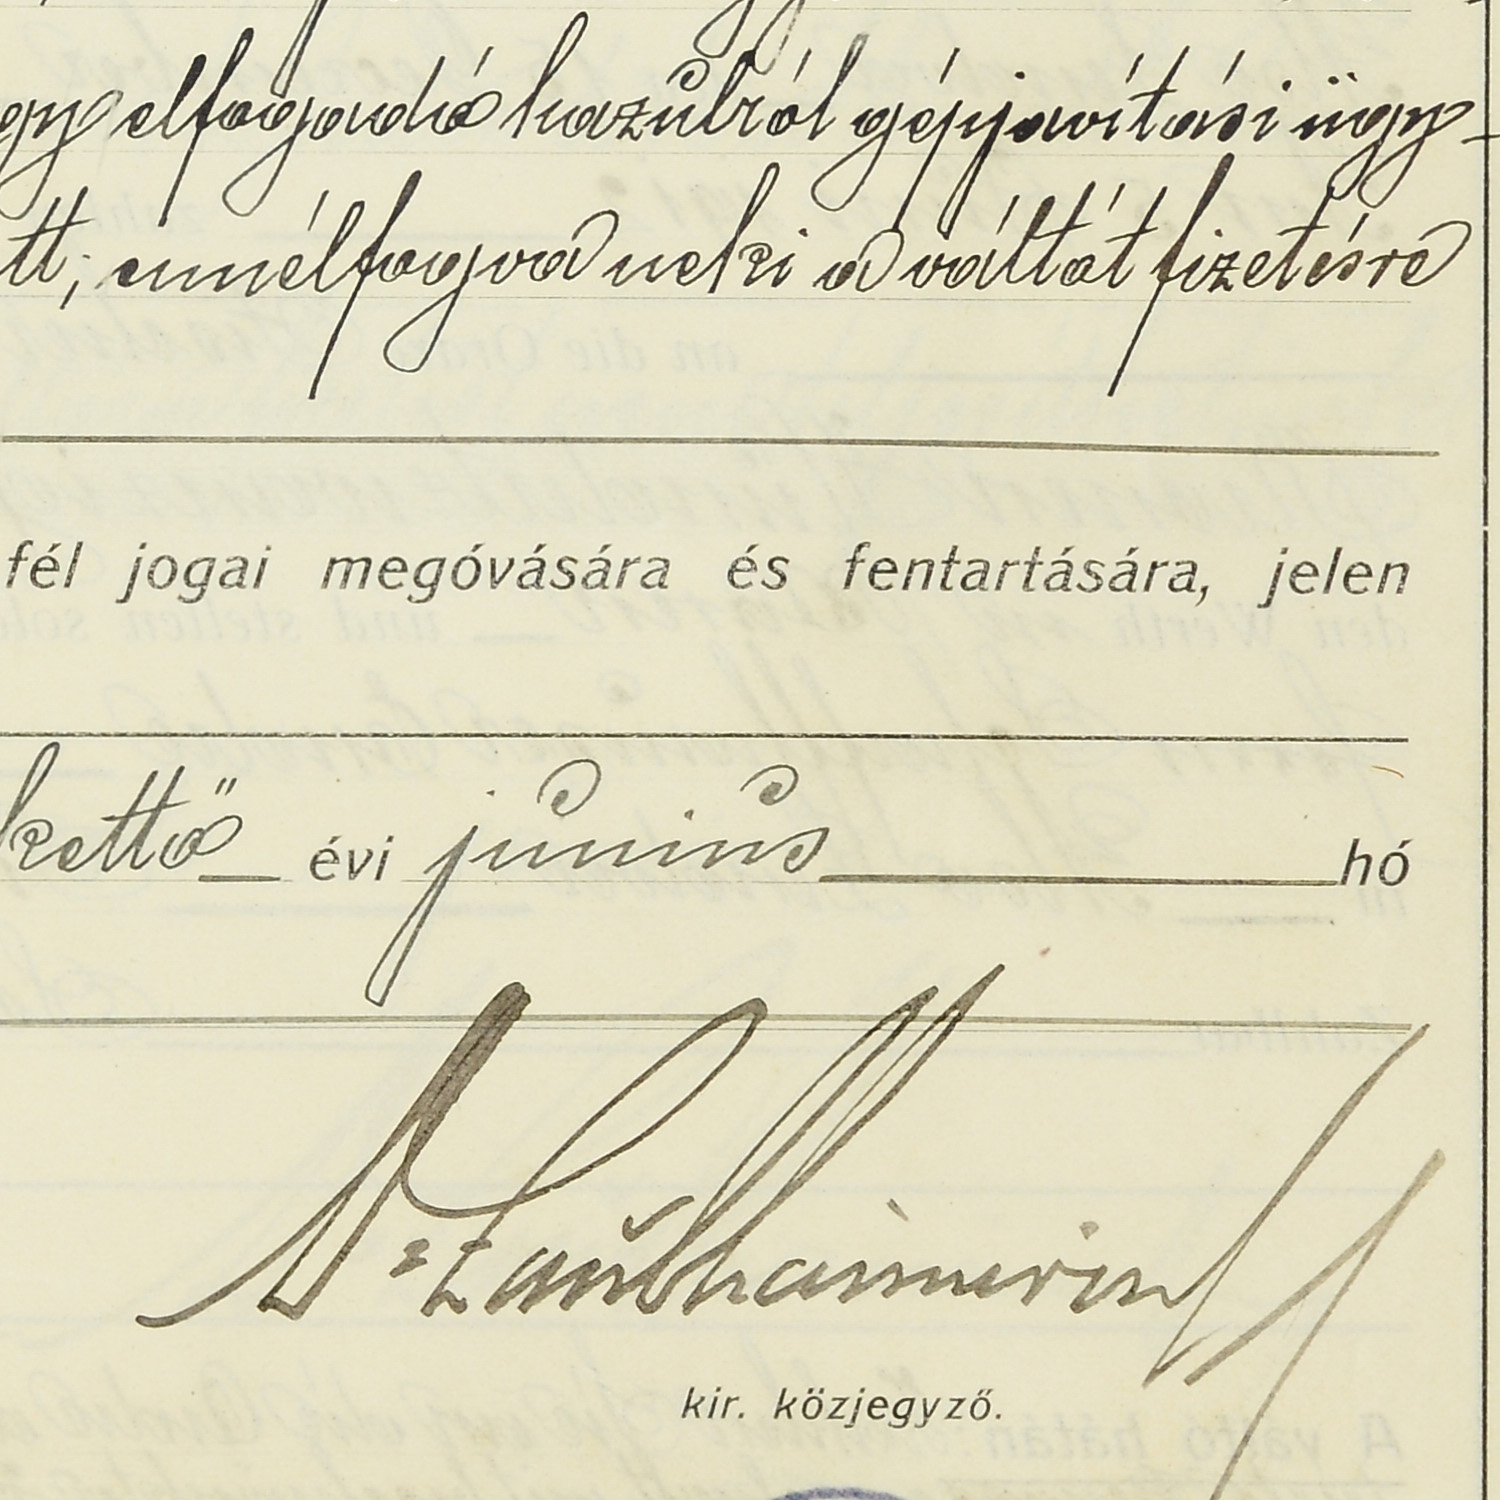 gy elfogadó hazulról gépjavítási ügy-
tt; ennélfogva neki a váltót fizetésre
fél jogai megóvására és fentartására, jelen
kettő évi június hó
Dr
kir. közjegyző.